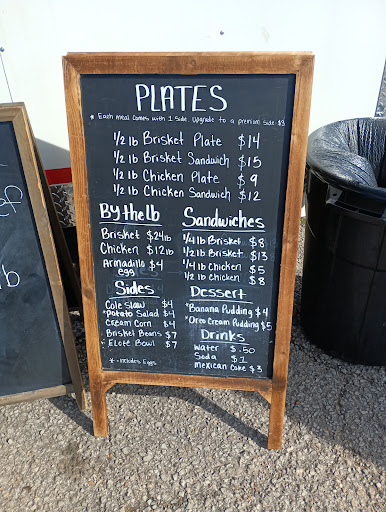 PLATES
* Each meal comes with 1 side. Upgrade to a premium side $3
1/2 lb Brisket Plate $14
1/2 lb Brisket Sandwich $15
1/2 lb Chicken Plate $9
1/2 lb Chicken Sandwich $12
By the lb
Brisket $24lb
Chicken $12lb
Armadillo $4
egg
Sides
Cole slaw $4
*Potato Salad $4
Cream Corn $4
Brisket Beans $7
* Elote Bowl $7
* -includes Eggs
Sandwiches
1/4 lb Brisket $8
1/2 lb Brisket $13
1/4 lb Chicken $5
1/2 lb Chicken $8
Dessert
*Banana Pudding $4
*Oreo Cream Pudding $5
Drinks
Water $.50
Soda $1
Mexican Coke $3